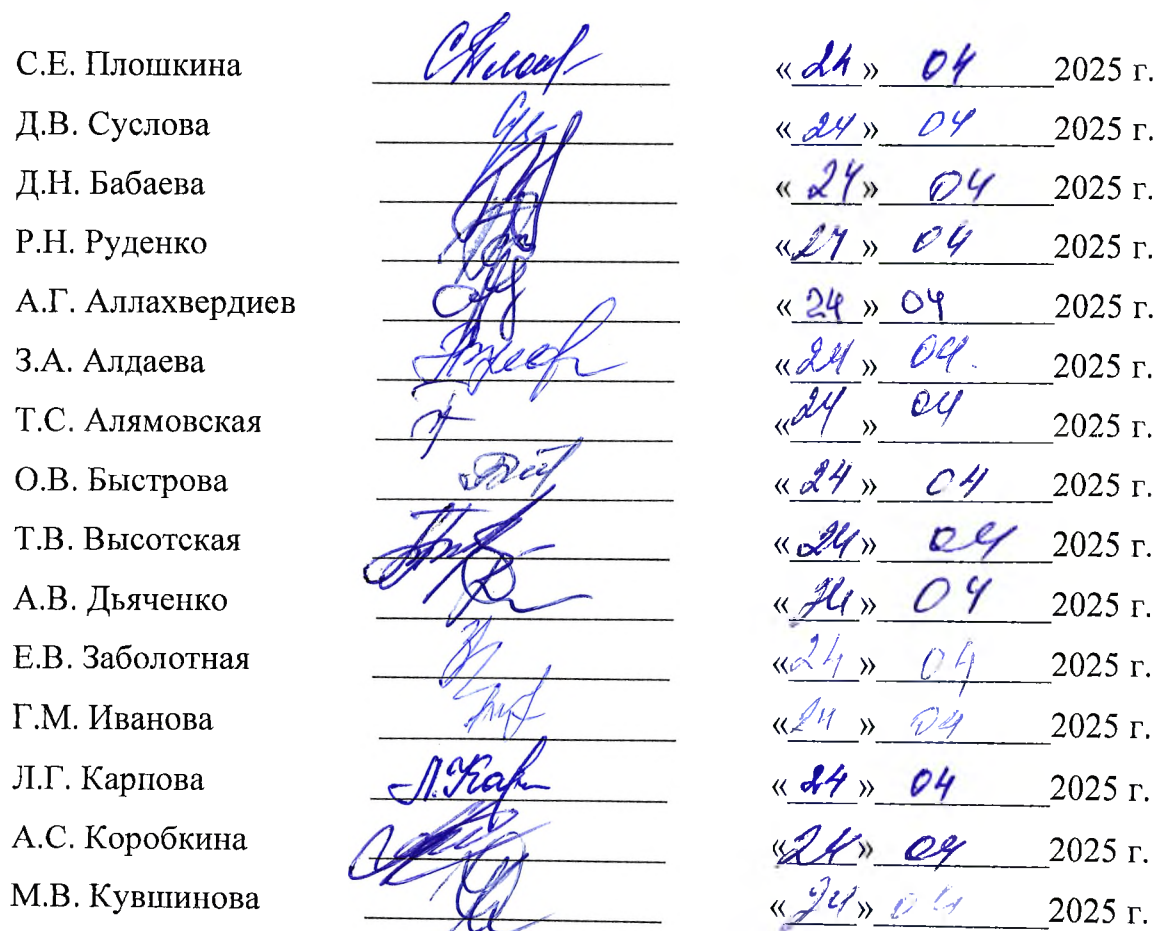 С.Е. Плошкина «24» 04 2025 г.
Д.В. Суслова «24» 04 2025 г.
Д.Н. Бабаева «24» 04 2025 г.
Р.Н. Руденко «24» 04 2025 г.
А.Г. Аллахвердиев «24» 04 2025 г.
З.А. Алдаева «24» 04 2025 г.
Т.С. Алямовская «24» 04 2025 г.
О.В. Быстрова «24» 04 2025 г.
Т.В. Высотская «24» 04 2025 г.
А.В. Дьяченко «24» 04 2025 г.
Е.В. Заболотная «24» 04 2025 г.
Г.М. Иванова «24» 04 2025 г.
Л.Г. Карпова Л.Кар «24» 04 2025 г.
А.С. Коробкина «24» 04 2025 г.
М.В. Кувшинова «24» 04 2025 г.